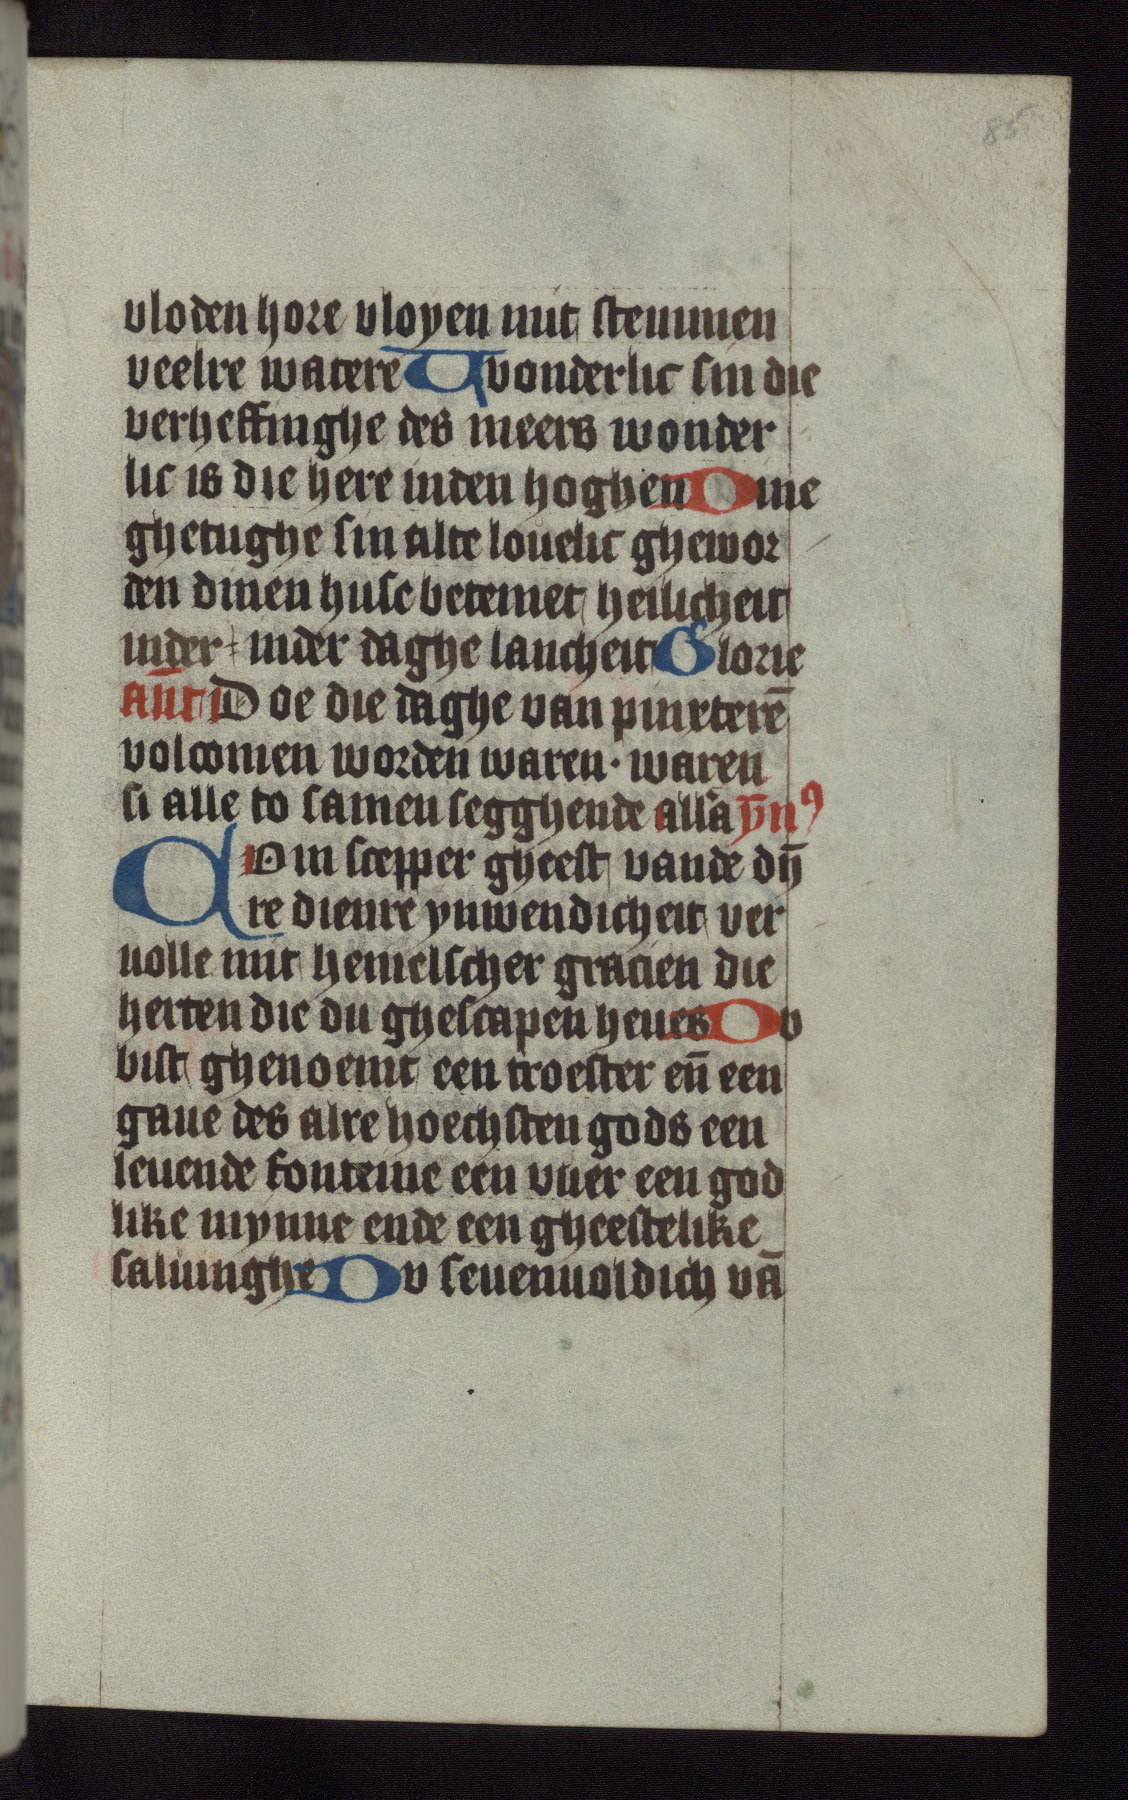 85
vloden hore vloyen mit stemmen
veelre watere Wonderlic sin die
verheffinghe des meers wonder
lic is die here inden hoghen Dine
ghetughe sin alte louelic ghewor
den dinen huse betemet heilicheit
inder inder daghe lancheit Glorie
an̄t Doe die daghe van pinxterē
volcomen worden waren · waren
si alle to samen segghende alla ȳnꝰ
Com scepper gheest vande dȳ
re dienre ynwendicheit ver
uolle mit hemelscher gracien die
herten die du ghescapen heues Dv
bist ghenoemt een troester en̄ een
gaue des alre hoechsten gods een
leuende fonteine een vuer een god
like mynne ende een gheestelike
saluinghe Dv seuenuoldich vā